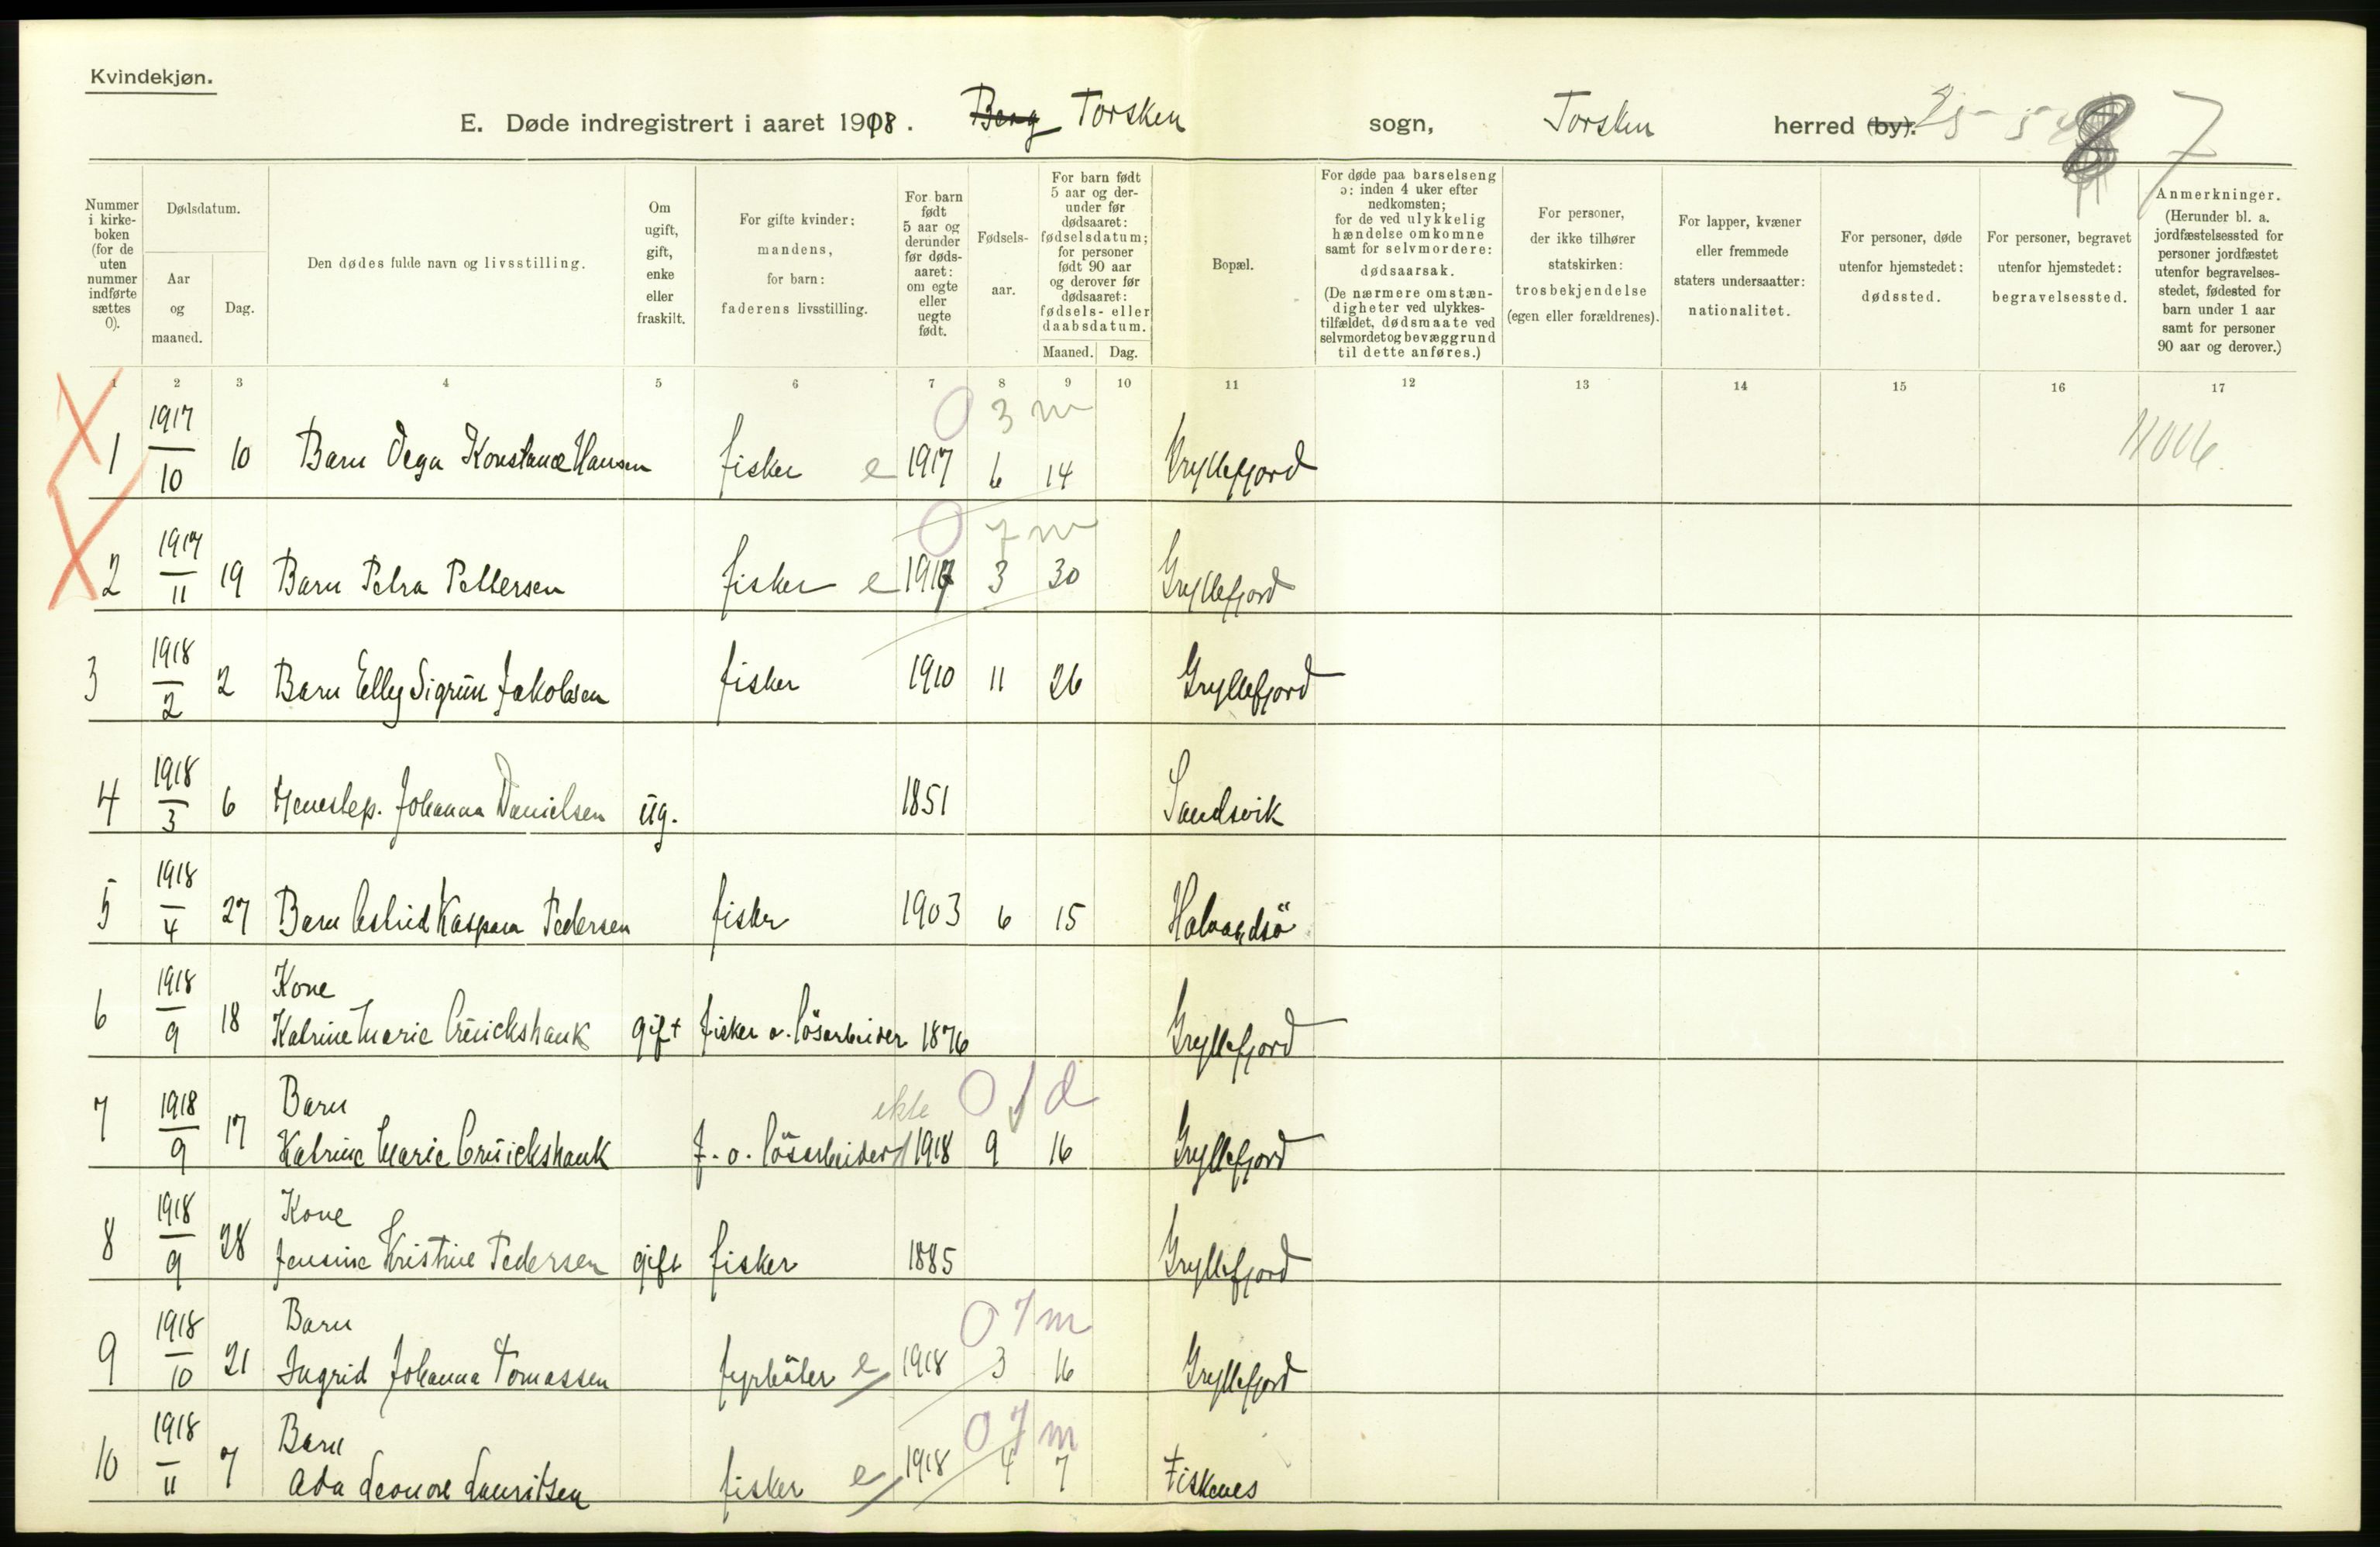 Kvindekjøn.
E. Døde indregistrert i aaret 1918. Berg Torsken sogn, Torsken herred (by). 25-5 8 7
Nummer i kirke-boken (for de uten nummer indførte sættes 0).
Dødsdatum.
Aar og maaned.
Dag.
Den dødes fulde navn og livsstilling.
Om ugift, gift, enke eller fraskilt.
For gifte kvinder: mandens, for barn: faderens livsstilling.
For barn født 5 aar og derunder før døds-aaret: om egte eller uegte født.
Fødsels-aar.
For barn født 5 aar og der-under før dødsaaret: fødselsdatum; for personer født 90 aar og derover før dødsaaret: fødsels- eller daabsdatum.
Maaned. Dag.
Bopæl.
For døde paa barselseng ɔ: inden 4 uker efter nedkomsten; for de ved ulykkelig hændelse omkomne samt for selvmordere: dødsaarsak. (De nærmere omstæn-digheter ved ulykkes-tilfældet, dødsmaate ved selvmordet og bevæggrund til dette anføres.)
For personer, der ikke tilhører statskirken: trosbekjendelse (egen eller forældrenes).
For lapper, kvæner eller fremmede staters undersaatter: nationalitet.
For personer, døde utenfor hjemstedet: dødssted.
For personer, begravet utenfor hjemstedet: begravelsessted.
Anmerkninger. (Herunder bl. a. jordfæstelsessted for personer jordfæstet utenfor begravelses-stedet, fødested for barn under 1 aar samt for personer 90 aar og derover.)
1 2 3 4 5 6 7 8 9 10 11 12 13 14 15 16 17
0 3 m
1 1917/10 10 Barn Vega Konstance Hansen fisker e 1917 6 14 Gryllefjord
0 7 m
2 1917/11 19 Barn Petra Pettersen fisker e 1917 3 30 Gryllefjord
3 1918/2 2 Barn Elly Sigrun Jakobsen fisker 1910 11 26 Gryllefjord
4 1918/3 6 tjenestep. Johanna Danielsen ug. 1851 Sandsvik
5 1918/4 27 Barn Astrid Kaspara Pedersen fisker 1903 6 15
6 1918/9 18 Kone
Katrine Marie Cruickshank gift fisker o. løsarbeider 1876 Gryllefjord
7 1918/9 17 Barn ekte 0 1 d
Katrine Marie Cruickshank f. o. løsarbeider 1918 9 16 Gryllefjord
8 1918/9 28 Kone
Jensine Kristine Pedersen gift fisker 1885 Gryllefjord
9 1918/10 21 Barn 0 7 m
Ingrid Johanna Tomassen fyrbøter e 1918 3 16 Gryllefjord
10 1918/11 7 Barn 0 7 m
Ada Leonore Lauritsen fisker e 1918 4 7 Fiskenes